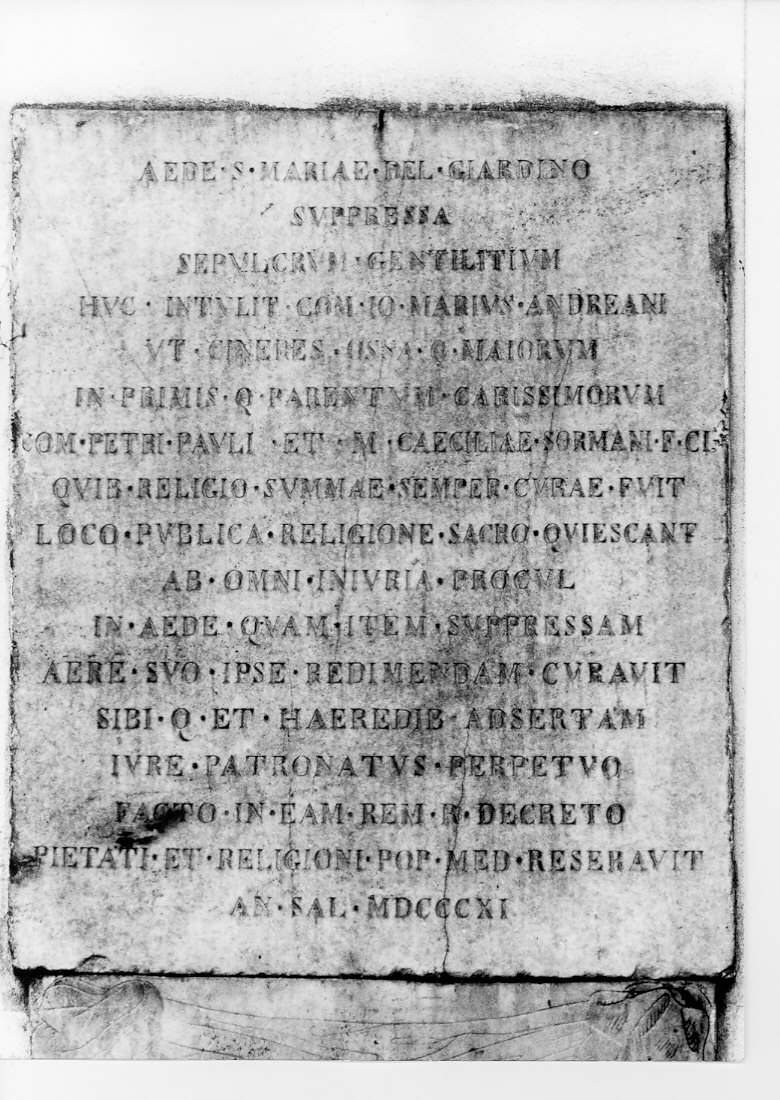 AEDE·S·MARIAE·DEL·GIARDINO
SVPPRESSA
SEPVLCRVM·GENTILITIVM
HVC·INTVLIT·COM·IO·MARIVS·ANDREANI
VT·CINERES·OSSA·Q·MAIORVM
IN·PRIMIS·Q·PARENTVM·CARISSIMORVM
COM·PETRI·PAVLI·ET·M·CAECILIAE·SORMANI·F·CI·
QVIB·RELIGIO·SVMMAE·SEMPER·CVRAE·FVIT
LOCO·PVBLICA·RELIGIONE·SACRO·QVIESCANT
AB·OMNI·INIVRIA·PROCVL
IN·AEDE·QVAM·ITEM·SVPPRESSAM
AERE·SVO·IPSE·REDIMENDAM·CVRAVIT
SIBI·Q·ET·HAEREDIB·ADSERTAM
IVRE·PATRONATVS·PERPETVO
FACTO·IN·EAM·REM·R·DECRETO
PIETATI·ET·RELIGIONI·POP·MED·RESERAVIT
AN·SAL·MDCCCXI